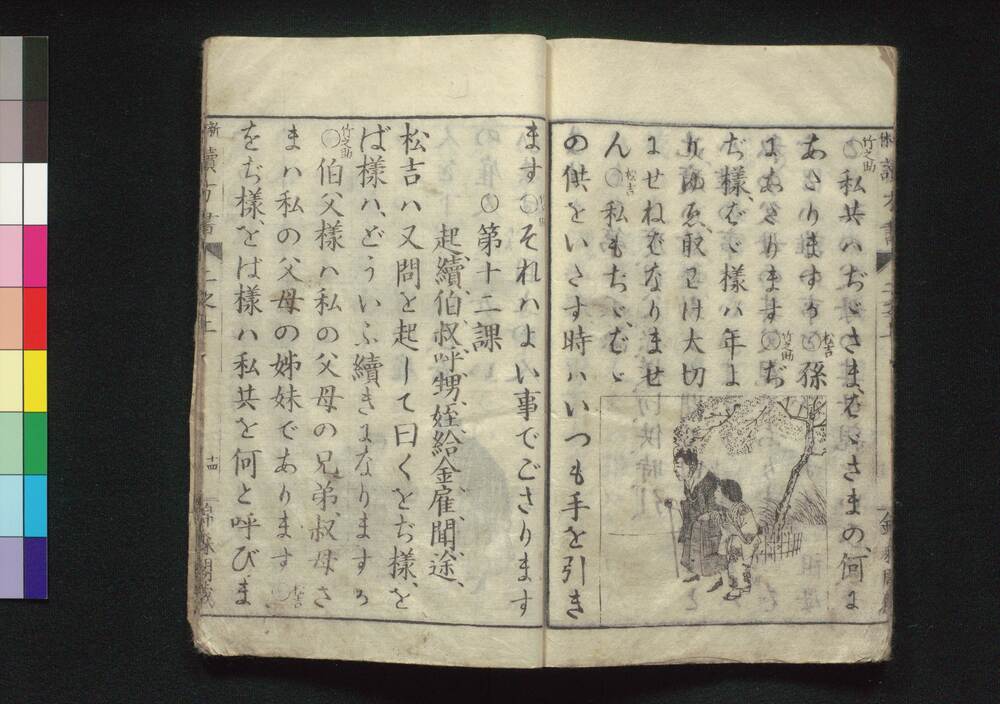 竹之助
○私共ハぢゞさま、ばゞさまの、何に
あたりますか○孫
松吉
にあたります○ぢ
竹之助
ぢ様、ばゞ様ハ年よ
りゆゑ、敬ひ大切
にせねばなりませ
ん○私もちゝ、はゝ
松吉
の供をいたす時ハいつも手を引き
ます○それハよい事でござります
○第十二課
起、續、伯、叔、呼、甥、姪、給、金、雇、聞、途、
松吉ハ又問を起して曰くをぢ様、を
ば様ハ、どういふ續きになりますか
竹之助
○伯父様ハ私の父母の兄弟、叔母さ
まハ私の父母の姊妹であります○
松吉
をぢ様、をば様ハ私共を何と呼びま
讀方書
二之上
十四